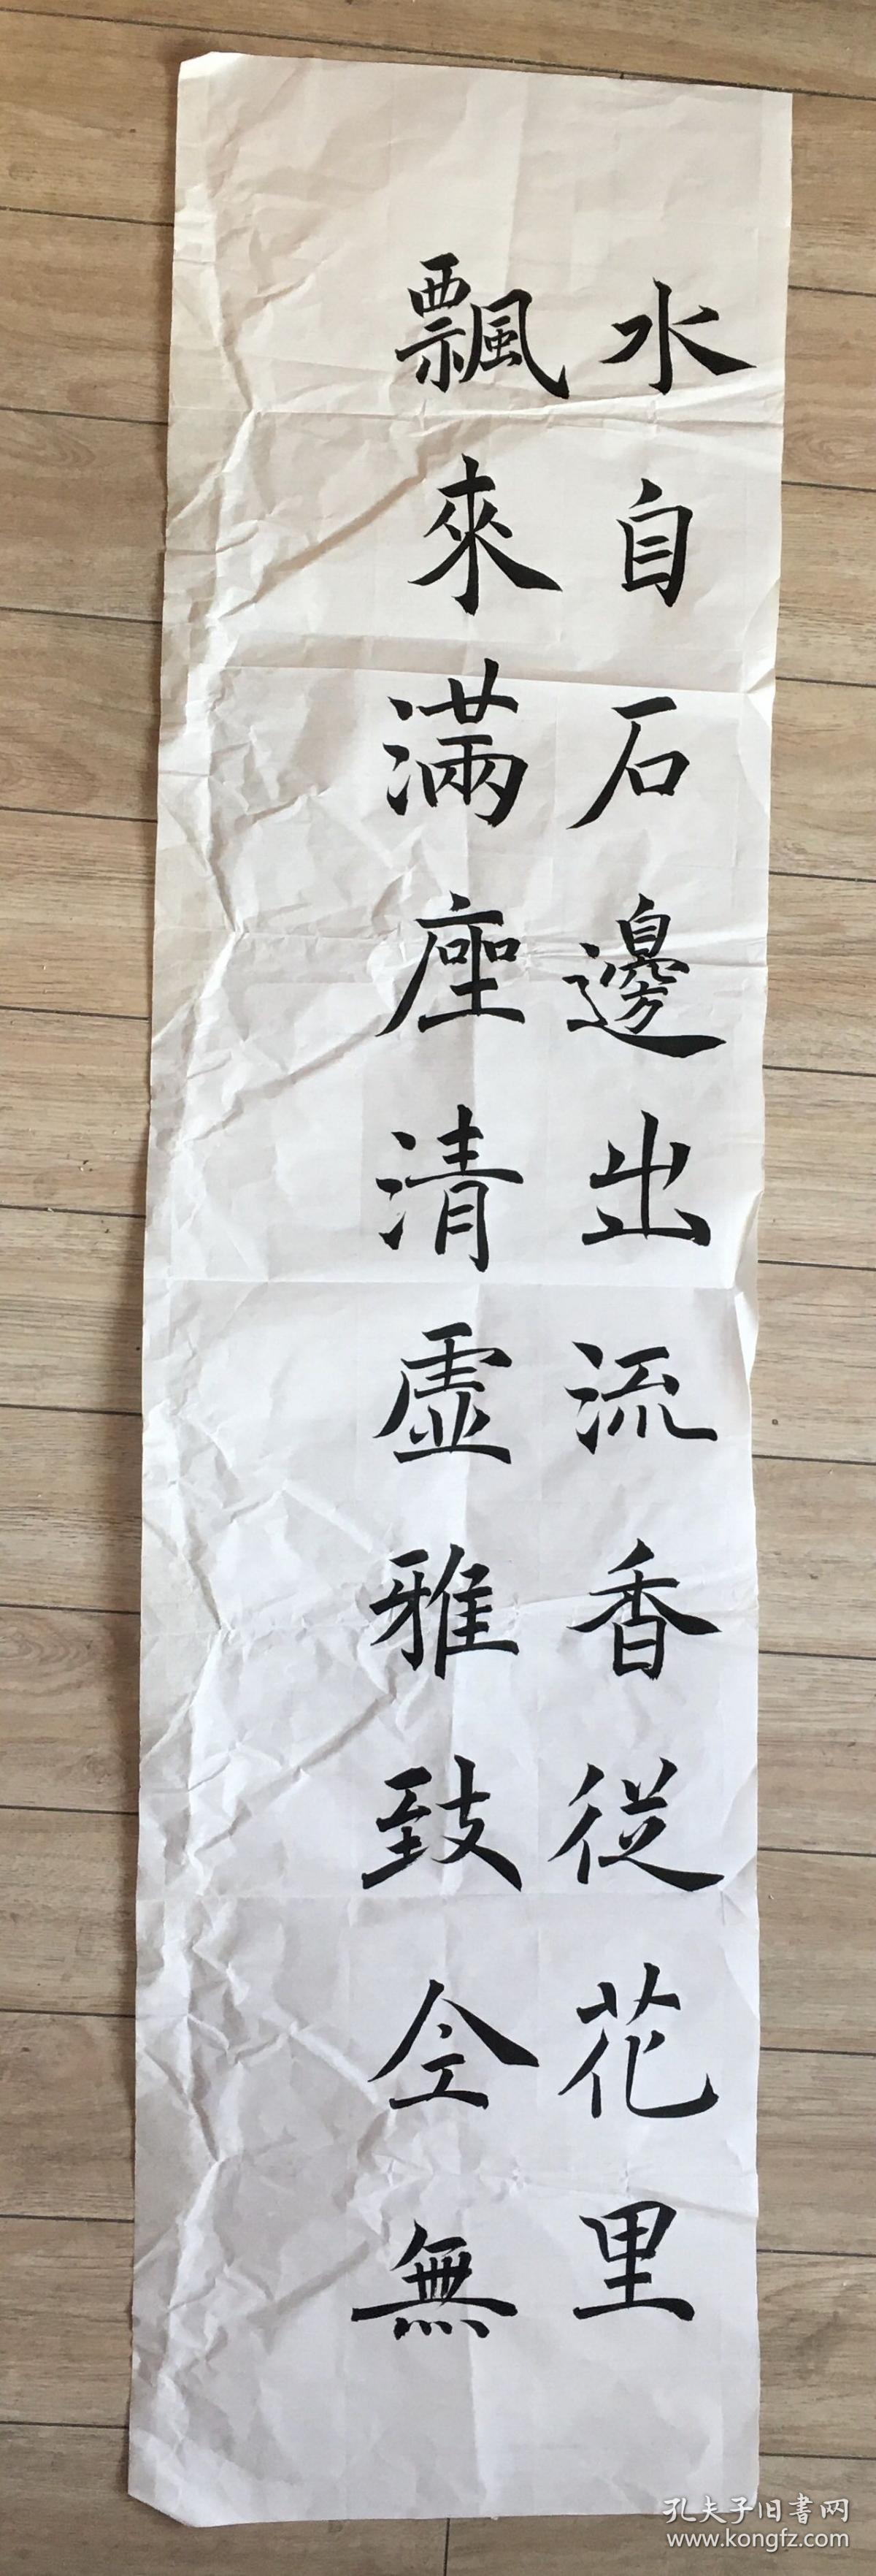 水自石邊出流香從花里
飄來滿座清虛雅致今無
孔夫子旧書网
www.kongfz.com